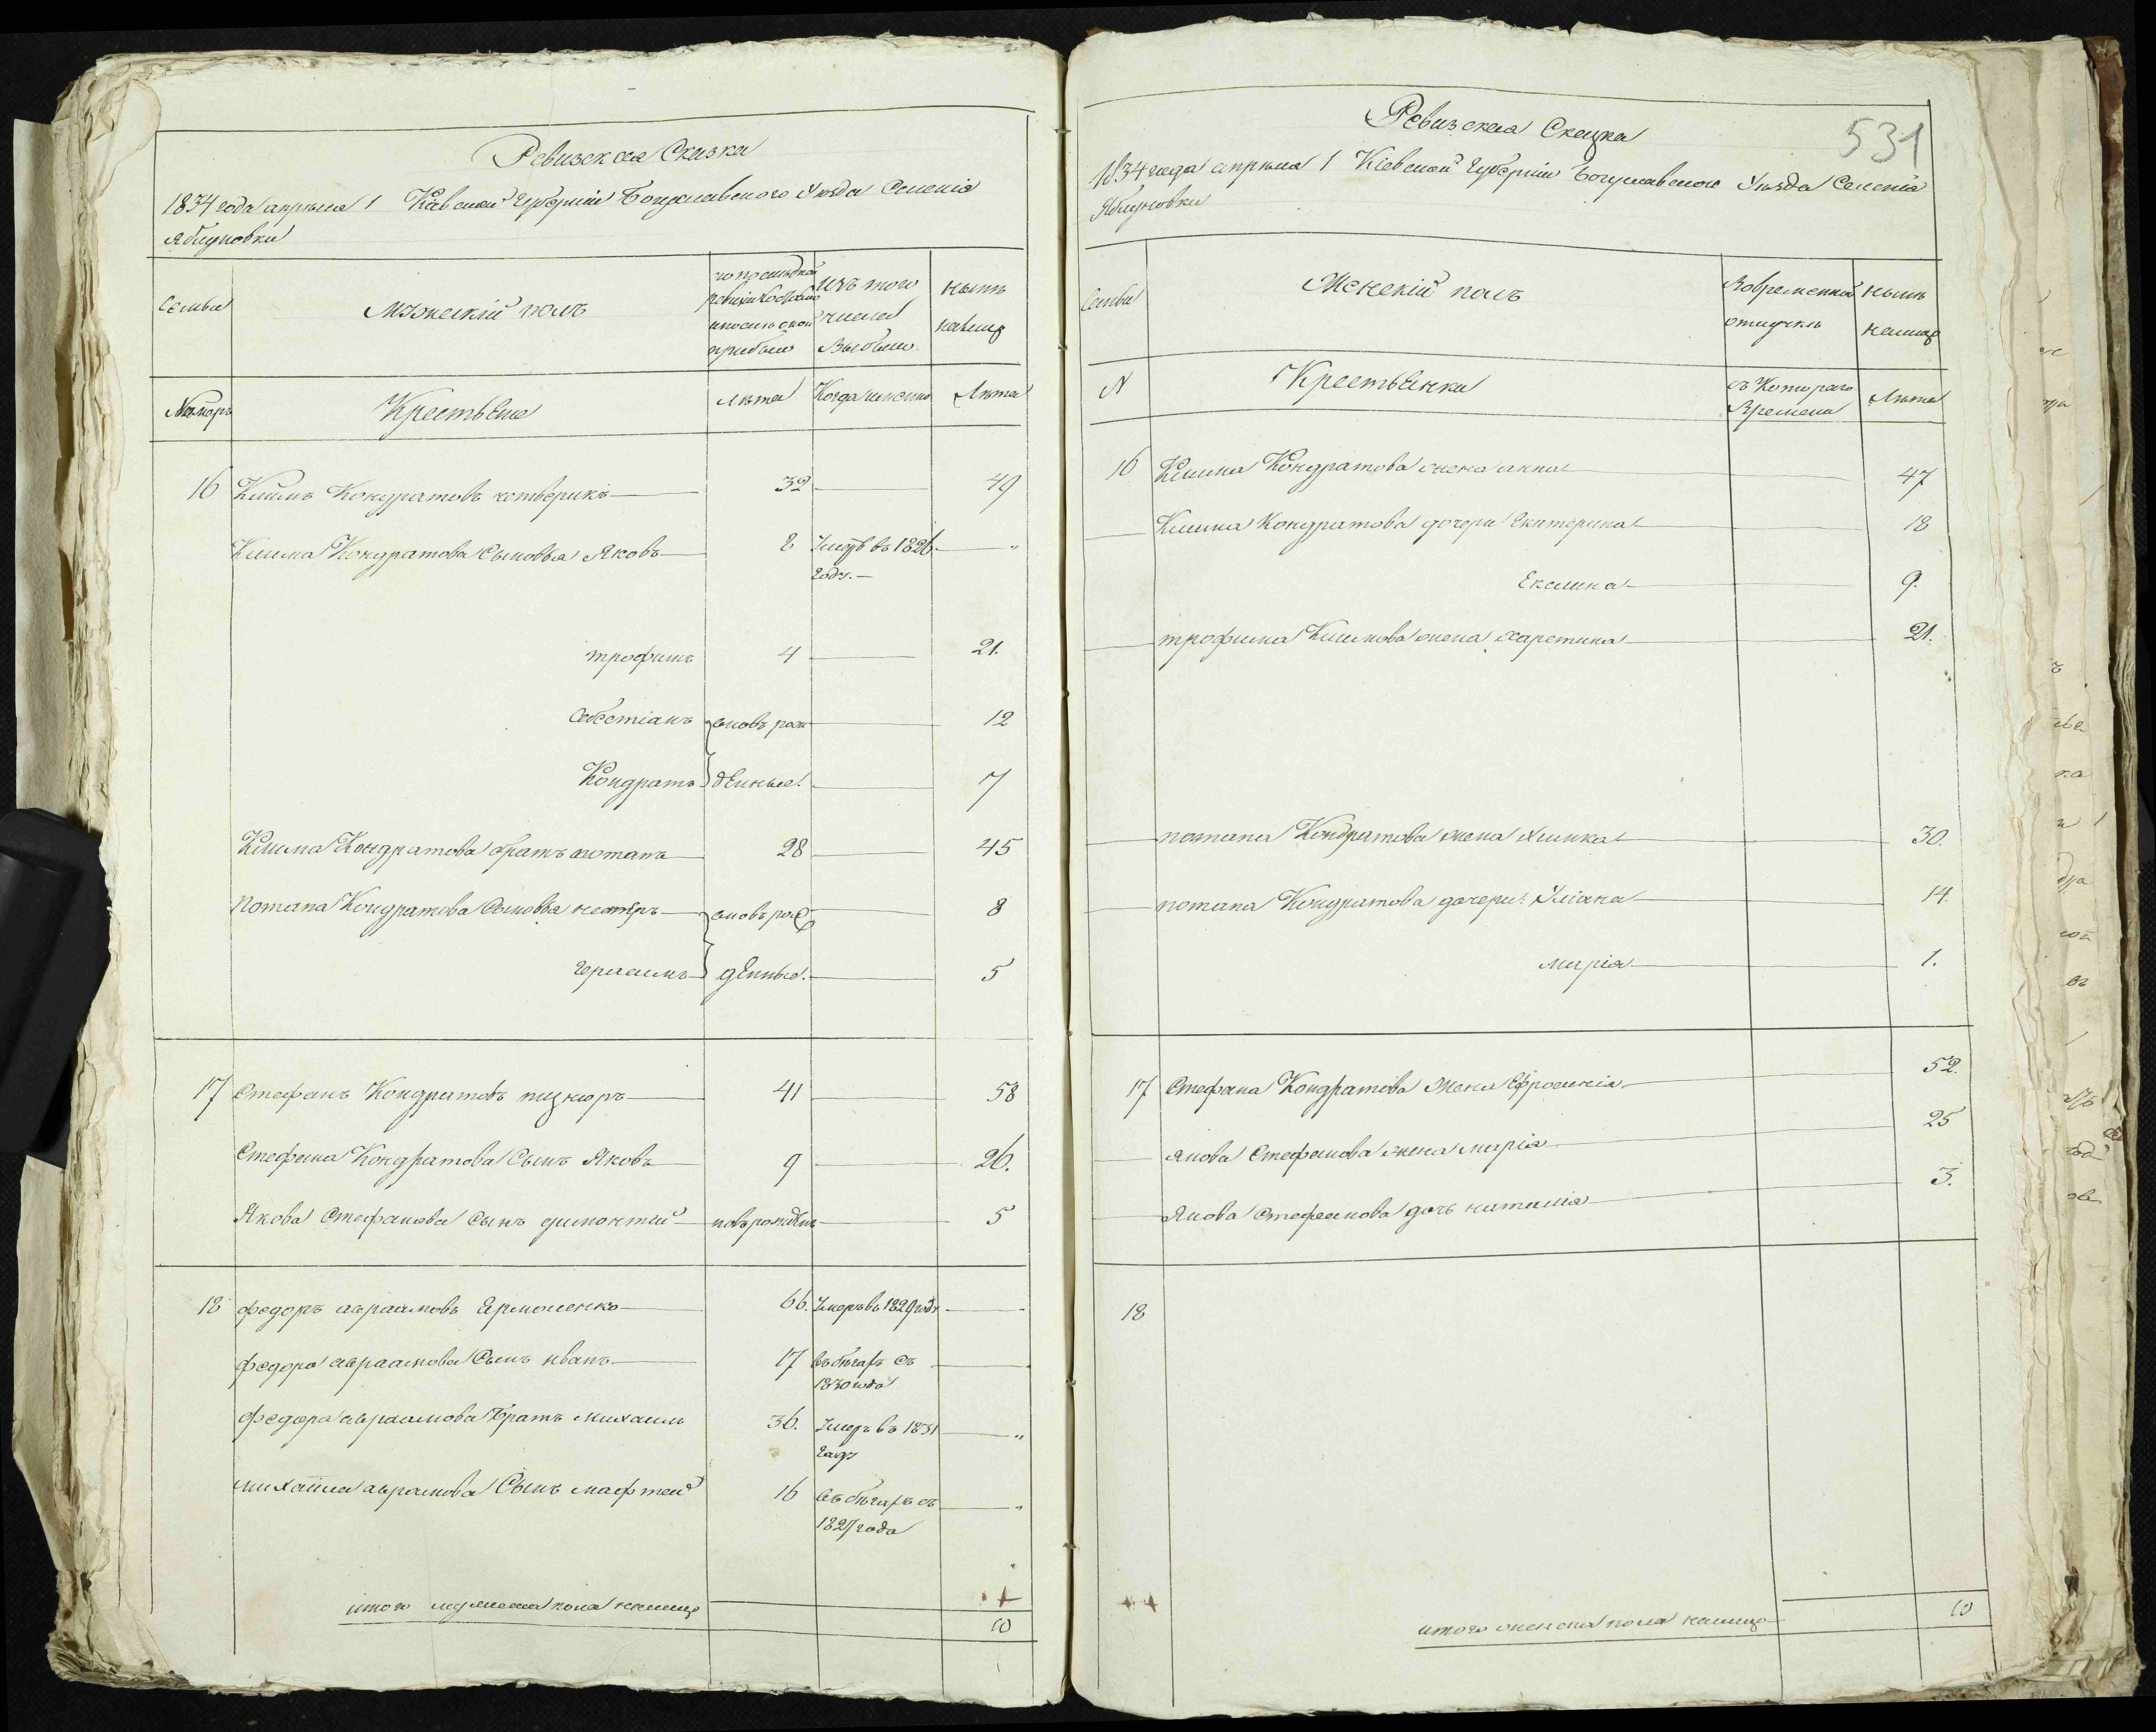 Ревизская Сказка
1834 года апреля 1 Киевской Губернии Богуславского Уѣзда Селенія
Яблуновки
Семьи
Мужескій полъ
по последней
ревизіи состояло
и после оной
прибыло
изъ того
числа
Выбыло
нынѣ
налицо
Номеръ
Крестьяне
Лѣта
Когда именно
Лѣта
16 Климъ Кондратовъ четверикъ 32 49
Клима Кондратова Сыновья Яковъ 8 Умеръ въ 1826 "
году.
трофимъ 4 21.
Себестіанъ вновь рож 12
Кондратъ денные. 7
Клима Кондратова братъ потапъ 28 45
Потапа Кондратова Сыновья нестеръ вновь рож 8
герасимъ денные. 5
17 Стефанъ Кондратовъ 41 58
Стефана Кондратова Сынъ Яковъ 9 26.
Якова Стефанова Сынъ новорожден 5
18 федоръ авраамовъ Ермоленко 66. Умеръ въ 1829 году "
федора авраамова Сынъ иванъ 17 въ бегах съ
1830 года
федора авраамова Братъ михаилъ 36. Умеръ въ 1831 "
году
михайла аврамова Сынъ мафтей 16 въ бегахъ съ "
1827 года
итого мужеска пола налицо 10
531
Ревизская Сказка
1834 года апреля 1 Кіевской Губерніи Богуславского Уѣзда Селенія
Яблуновки
Семьи
Женскій полъ
Вовременной
отлучкѣ
нынѣ
налицо
N
Крестьянки
съ Котораго
Времени
Лѣта
16 Клима Кондратова жена анна 47
Клима Кондратова дочери Екатерина 18
9.
трофима Климова жена харетина 21.
потапа Кондратова жена 30.
потапа Кондратова дочери: Уліана 14.
марія 1.
17 Стефана Кондратова Жена Ефросинія 52.
Якова Стефанова жена марія 25
Якова Стефанова дочь наталія 3.
18
итого женска пола налицо 10